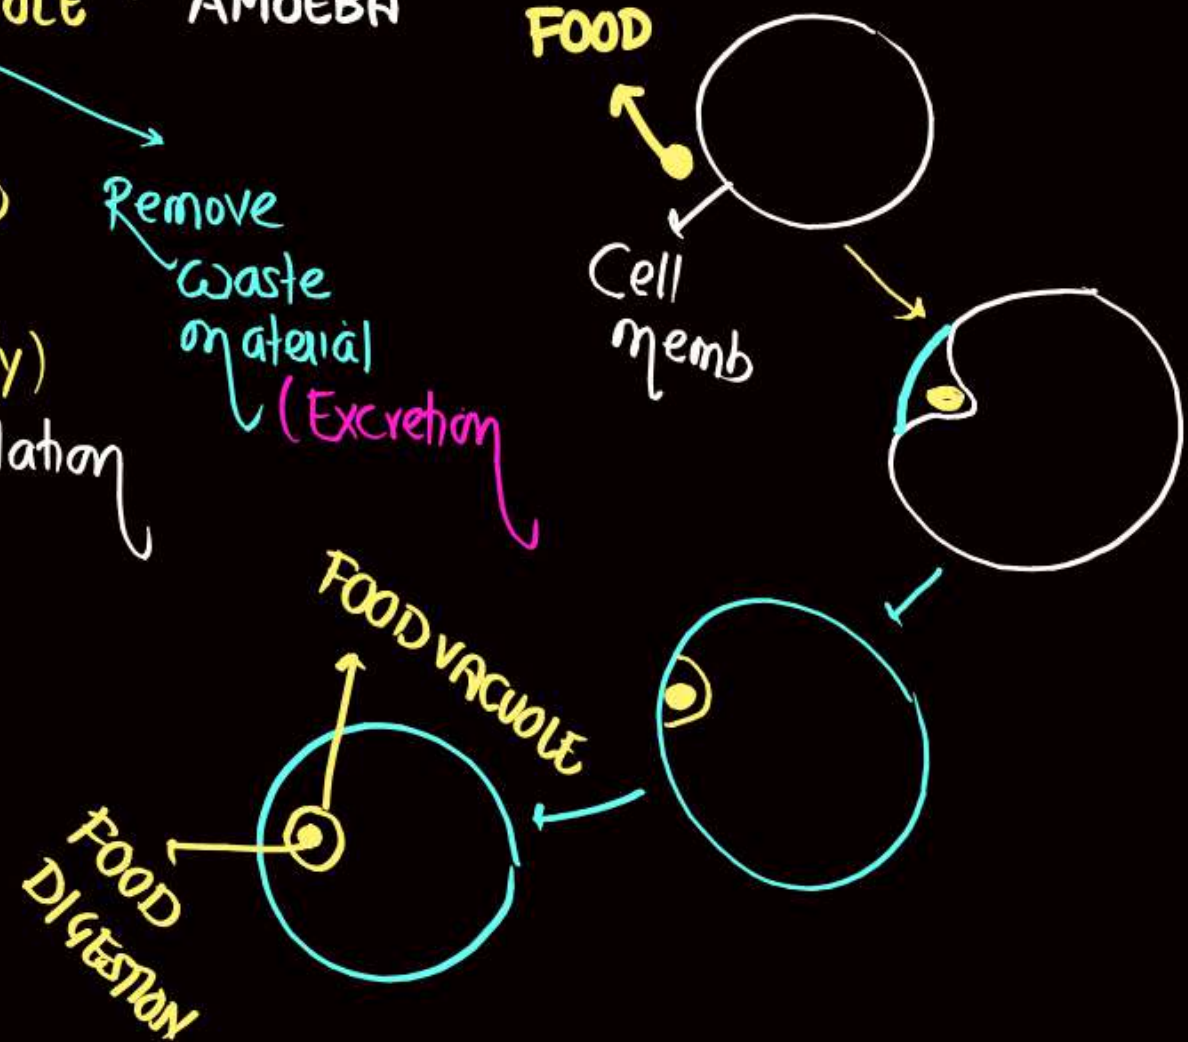 AMOEBA
FOOD
Remove
waste
material
(Excretion
Cell
memb
y)
lation
FOOD VACUOLE
FOOD
DIGESTION